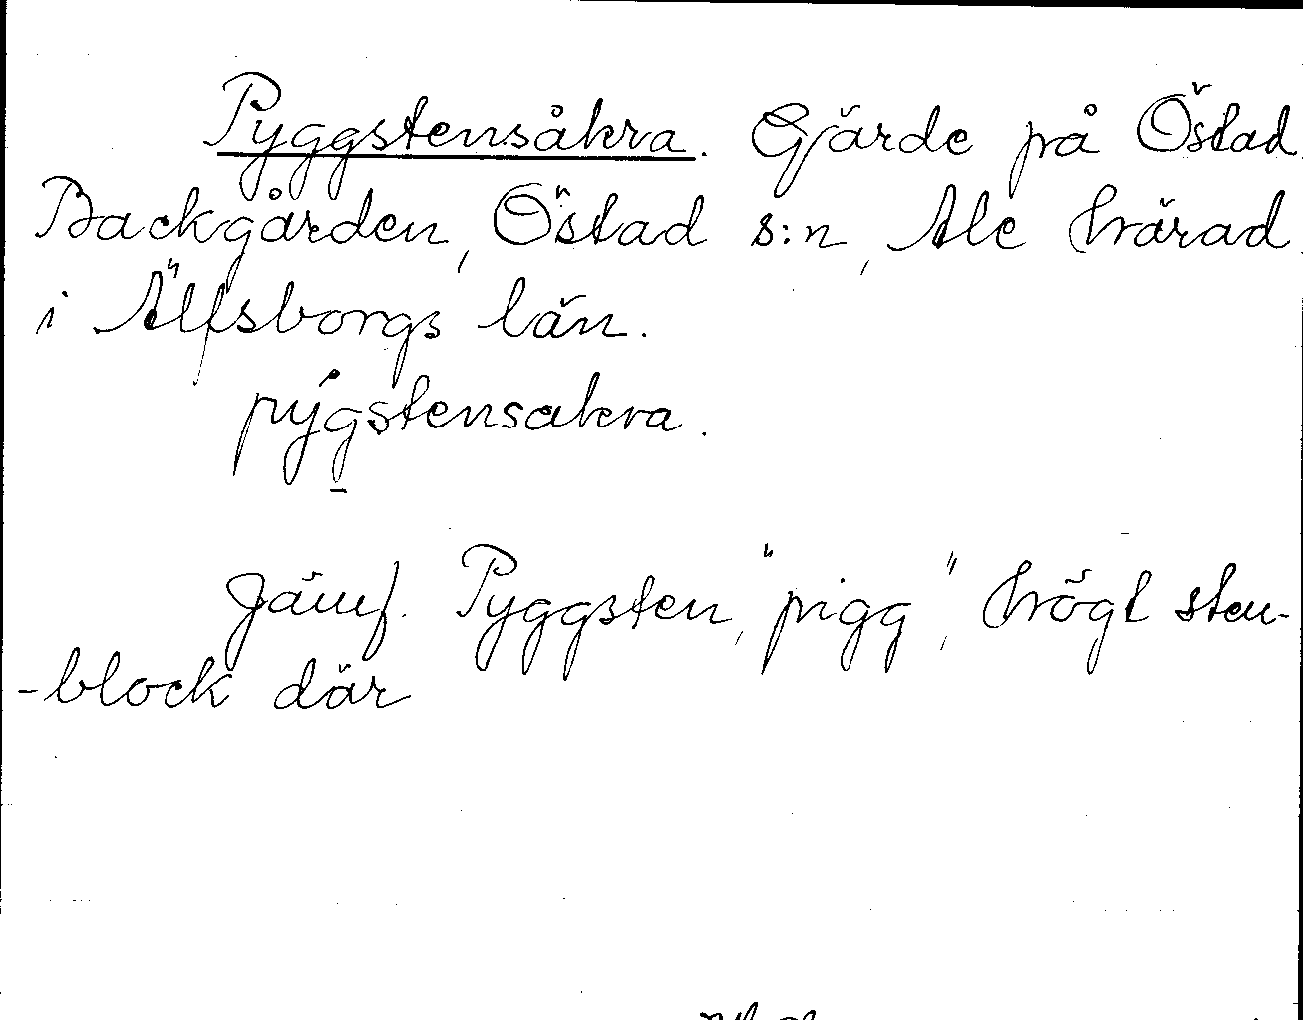 Pyggstensåkra. Gärde på Östad
Backgården, Östad s:n, Ale härad
i Älfsborgs län.
pýgstensakra.
Jämf. Pyggsten, "pigg", högt sten-
-block där